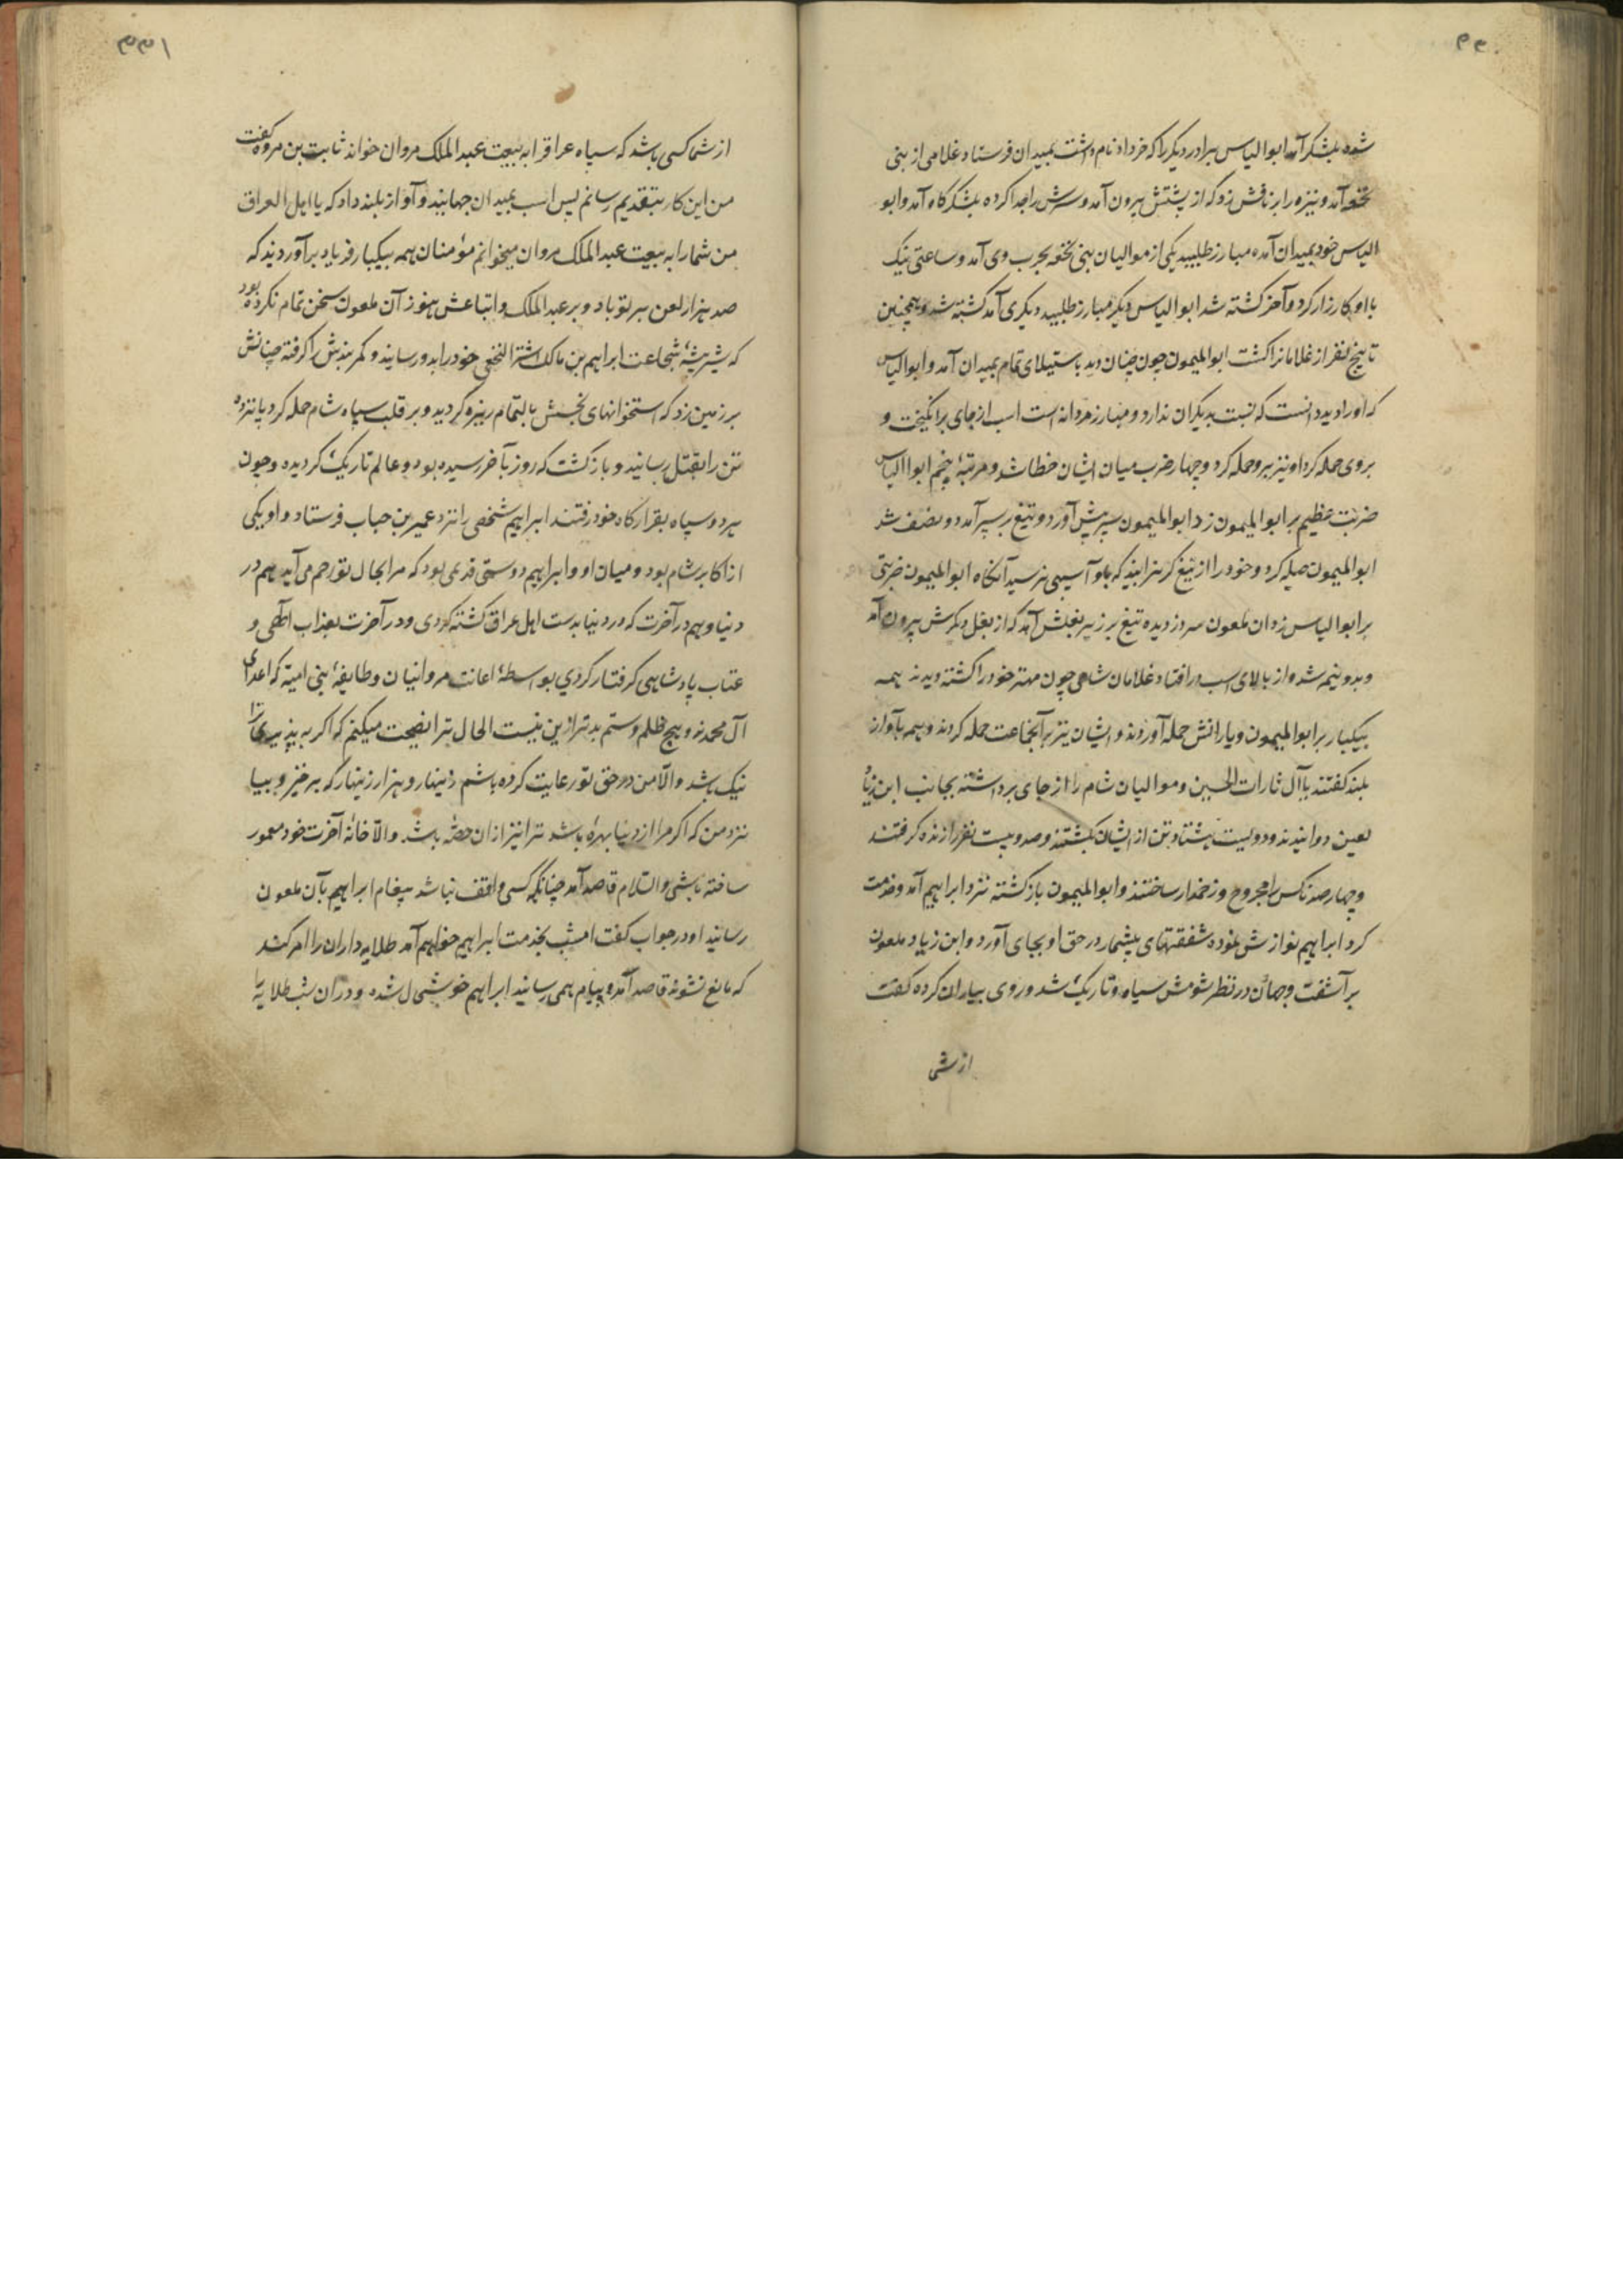 ۳۳۰
شده بلشکر آمد ابوالیاس برادر دیگر را که خرداد نام داشت بمیدان فرستاد غلامی از بنی
نخعه آمد و نیزه را بر نافش زد که از پشتش بیرون آمد و سرش را جدا کرده بلشکرگاه آمد و ابو
الیاس خود بمیدان آمده مبارز طلبید یکی از موالیان بنی نخعه بحرب وی آمد و ساعتی نیک
با او کارزار کرد و آخر کشته شد ابوالیاس دیگر مبارز طلبید دیگری آمد کشته شد و همچنین
تا پنج نفر از غلامانرا کشت ابوالمیمون چون چنان دید باستیلای تمام بمیدان آمد و ابوالیاس
که او را دید دانست که نسبت بدیگران ندارد و مبارز مردانه است اسب از جای برانگیخت و
بروی حمله کرد او نیز برو حمله کرد و چهار ضرب میان ایشان خطا شد و مرتبهٔ پنجم ابوالیاس
ضربت عظیم بر ابوالمیمون زد ابوالمیمون سپر پیش آورد و تیغ بر سپر آمد و نصف شد
ابوالمیمون حیله کرد و خود را از تیغ گریزانید که باو آسیبی نرسید آنگاه ابوالمیمون ضربتی
بر ابوالیاس زد ان ملعون سر دزدیده تیغ بر زیر بغلش آمد که از بغل دیگرش بیرون آمد
و بدو نیم شد و از بالای اسب در افتاد غلامان شامی چون مهتر خود را کشته دیدند همه
بیکبار بر ابوالمیمون و یارانش حمله آوردند و ایشان نیز بر آنجماعت حمله کردند و همه بآواز
بلند گفتند یا آل ثارات الحسین و موالیان شام را از جای برداشته بجانب ابن زیاد
لعین دوانیدند و دویست هشتاد تن از ایشان بکشتند و صد و بیست نفر را زنده گرفتند
و چهارصد تا کس را مجروح و زخمدار ساختند و ابوالمیمون بازگشته نزد ابراهیم آمد و خدمت
کرد ابراهیم نوازش نموده شفقتهای بیشمار در حق او بجای آورد و ابن زیاد ملعون
برآشفت و جهان در نظر شومش سیاه و تاریک شد و روی بیاران کرده گفت
از شما
۳۳۱
از شما کسی باشد که سپاه عراقرا به بیعت عبدالملک مروان خواند ثابت بن مروه گفت
من این کار بتقدیم رسانم پس اسب بمیدان جهانید و آواز بلند داد که یا اهل العراق
من شما را به بیعت عبدالملک مروان میخوانم مؤمنان همه بیکبار فریاد برآوردند که
صد هزار لعن بر تو باد و بر عبدالملک و اتباعش هنوز آن ملعون سخن تمام نکرده بود
که شیر بیشهٔ شجاعت ابراهیم بن مالک اشتر النخعی خود را بدو رسانید و کمربندش را گرفته چنانش
بر زمین زد که استخوانهای نحسش بالتمام ریزه گردید و بر قلب سپاه شام حمله کرد پانزده
تن را بقتل رسانید و بازگشت که روز بآخر رسیده بود و عالم تاریک گردیده و چون
هر دو سپاه بقرارگاه خود رفتند ابراهیم شخصی را نزد عمیر بن حباب فرستاد و او یکی
از اکابر شام بود و میان او و ابراهیم دوستی قدیمی بود که مرا بحال تو رحم می‌آید هم در
دنیا و هم در آخرت که در دنیا بدست اهل عراق کشته گردی و در آخرت بعذاب الهی و
عتاب پادشاهی گرفتار گردی بواسطهٔ اعانت مروانیان و طایفهٔ بنی امیه که اعدای
آل محمدند و هیچ ظلم و ستم بدتر ازین نیست الحال ترا نصیحت میکنم که اگر به پذیری ترا
نیک باشد والّا من در حق تو رعایت کرده باشم زینهار و هزار زینهار که برخیز و بیا
نزد من که اگر مرا از دنیا بهره باشد ترا نیز از ان حصه باشد والّا خانهٔ آخرت خود معمور
ساخته باشی والسلام قاصد آمد چنانکه کسی واقف نباشد پیغام ابراهیم بآن ملعون
رسانید او در جواب گفت امشب بخدمت ابراهیم خواهم آمد طلایه داران را امر کند
که مانع نشوند قاصد آمد و پیام همی رسانید ابراهیم خوشحال شده و در ان شب طلایه را